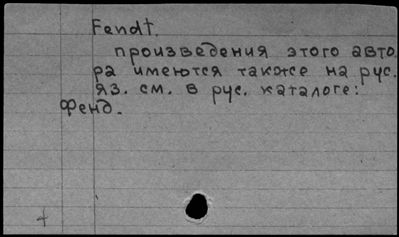 Fendt.
произведения этого авто
ра имеются также на рус.
яз. см. в рус. каталоге:
Фенд.